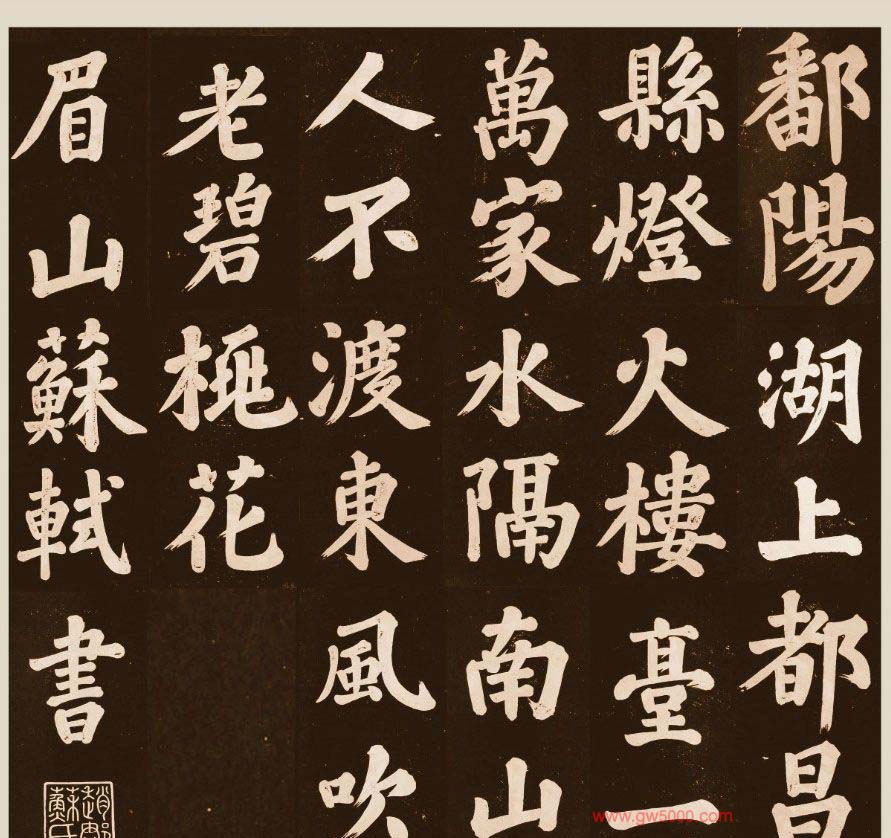 鄱陽湖上都昌
縣燈火樓臺一
萬家水隔南山
人不渡東風吹
老碧桃花
眉山蘇軾書
趙郡蘇氏
www.gw5000.com